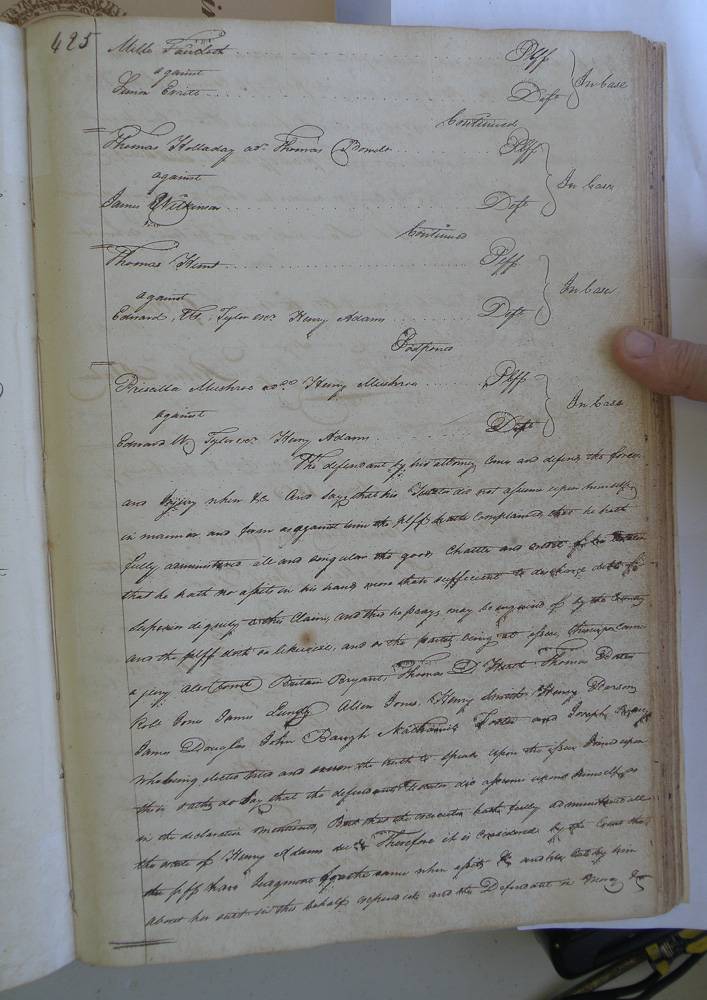 425
Mills Plff
against
Defs
In Case
Continued
Thomas Holladay ads. Thomas Plff
against
James Wilkinson Defs
In Case
Continued
Thomas Hunt Plff
against
Edward W. Tyler exr. Henry Adams Defs
In Case
Postpones
Priscilla Mushroe ad. Henry Mushroe Plff
against
Edward W Tyler exr. Henry Adams Defs
In Case
The defendant by his attorney comes and defends the force
and injury when &c. And says that his Testator did not assume upon himself
in manner and form as against him the plff hath complained that he hath
fully administered all and singular the goods Chattles and
that he hath no assets in his hands more than sufficient to discharge debts of
superior dignity to this Claim, and this he prays may be enquired of by the Country
and the plff doth so likewise, and so the parties being at issue, thereupon Came
a jury also Bryant, Thomas D Thomas Bates
Robt Jones James Jones, Henry Smith Henry Pierson
James Douglas John Baugh Nathaniel Foster and Joseph
who being elected tried and sworn the truth to speak upon the issue Joined upon
their oaths do Say that the defendants Testator did assume upon himself as
in the declaration mentioned, But that the executor hath fully administered all
the estate of Henry Adams Therefore it is considered by the Court that
the plff have Judgment for the same when assets &c and her Costs by him
about her suit in this behalf expended and the Defendant in Mercy &c